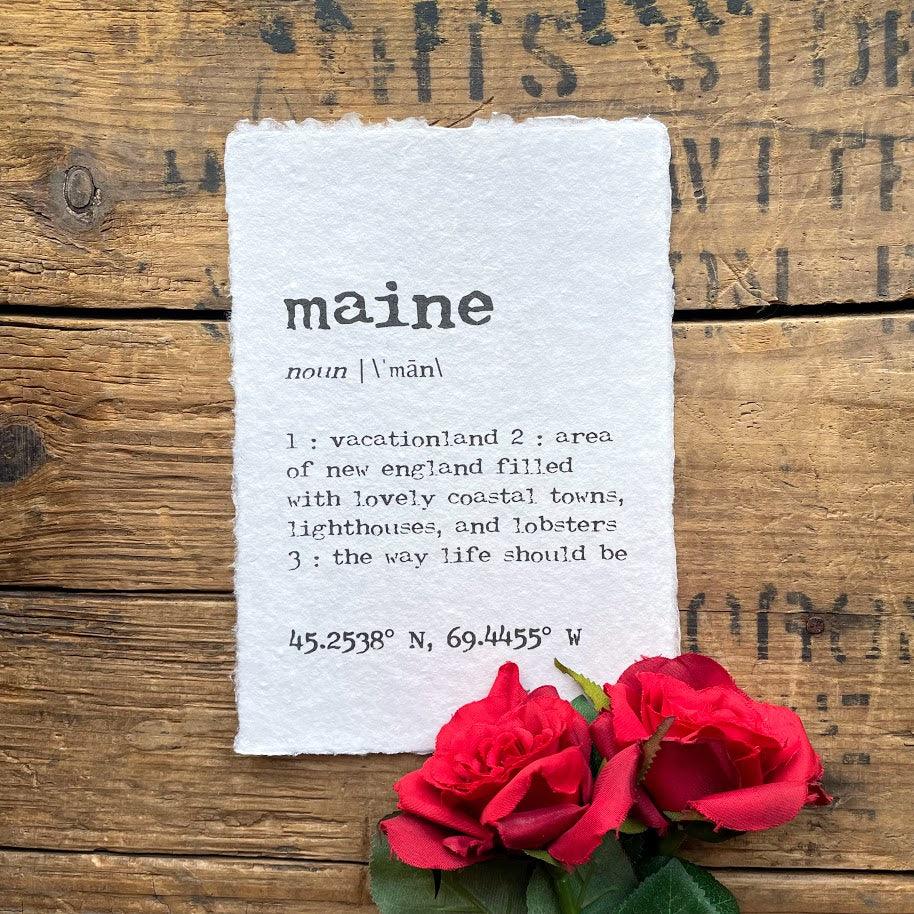 maine
noun | \ˈmān\
1 : vacationland 2 : area
of new england filled
with lovely coastal towns,
lighthouses, and lobsters
3 : the way life should be
45.2538° N, 69.4455° W